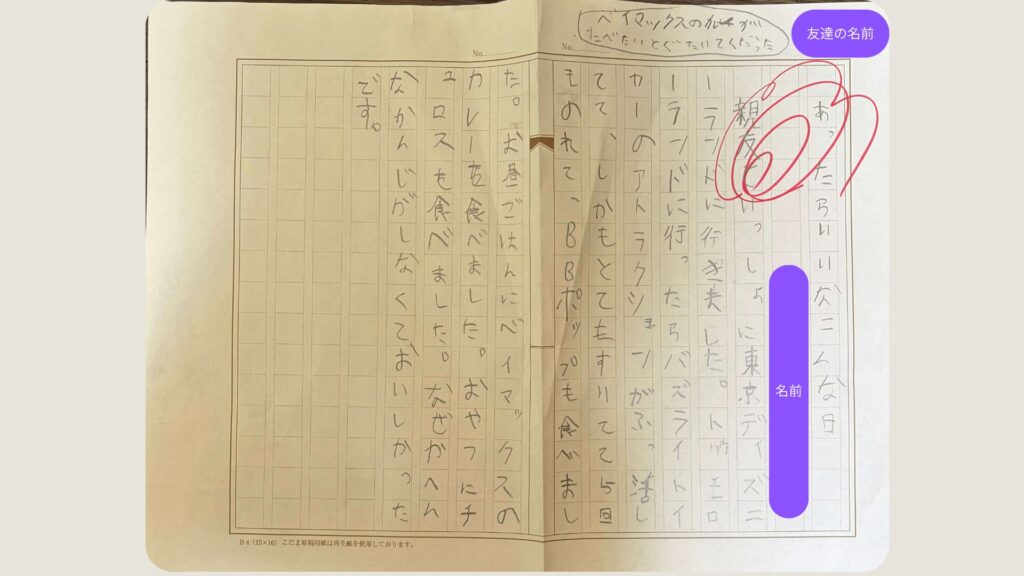 友達の名前
ベイマックスのカレーが
たべたいとぐたいてくだった
No.
No.
あったらいいなこんな日
名前
親友といっしょに東京ディズニ
ーランドに行きました。トゥモロ
ーランドに行ったらバズライトイ
カーのアトラクションがふっ活し
てて、しかもとてもすいてて5回
ものれて、BBポップも食べまし
た。お昼ごはんにベイマックスの
カレーを食べました。おやつにチ
ュロスも食べました。なぜかへん
なかんじがしなくておいしかった
です。
B4（15×16）こだま原稿用紙は再生紙を使用しております。